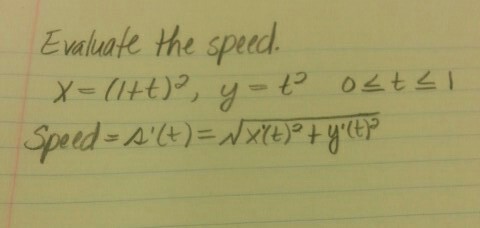 Evaluate the speed.
x = (1+t)², y = t² 0 ≤ t ≤ 1
Speed = s'(t) = √x'(t)² + y'(t)²